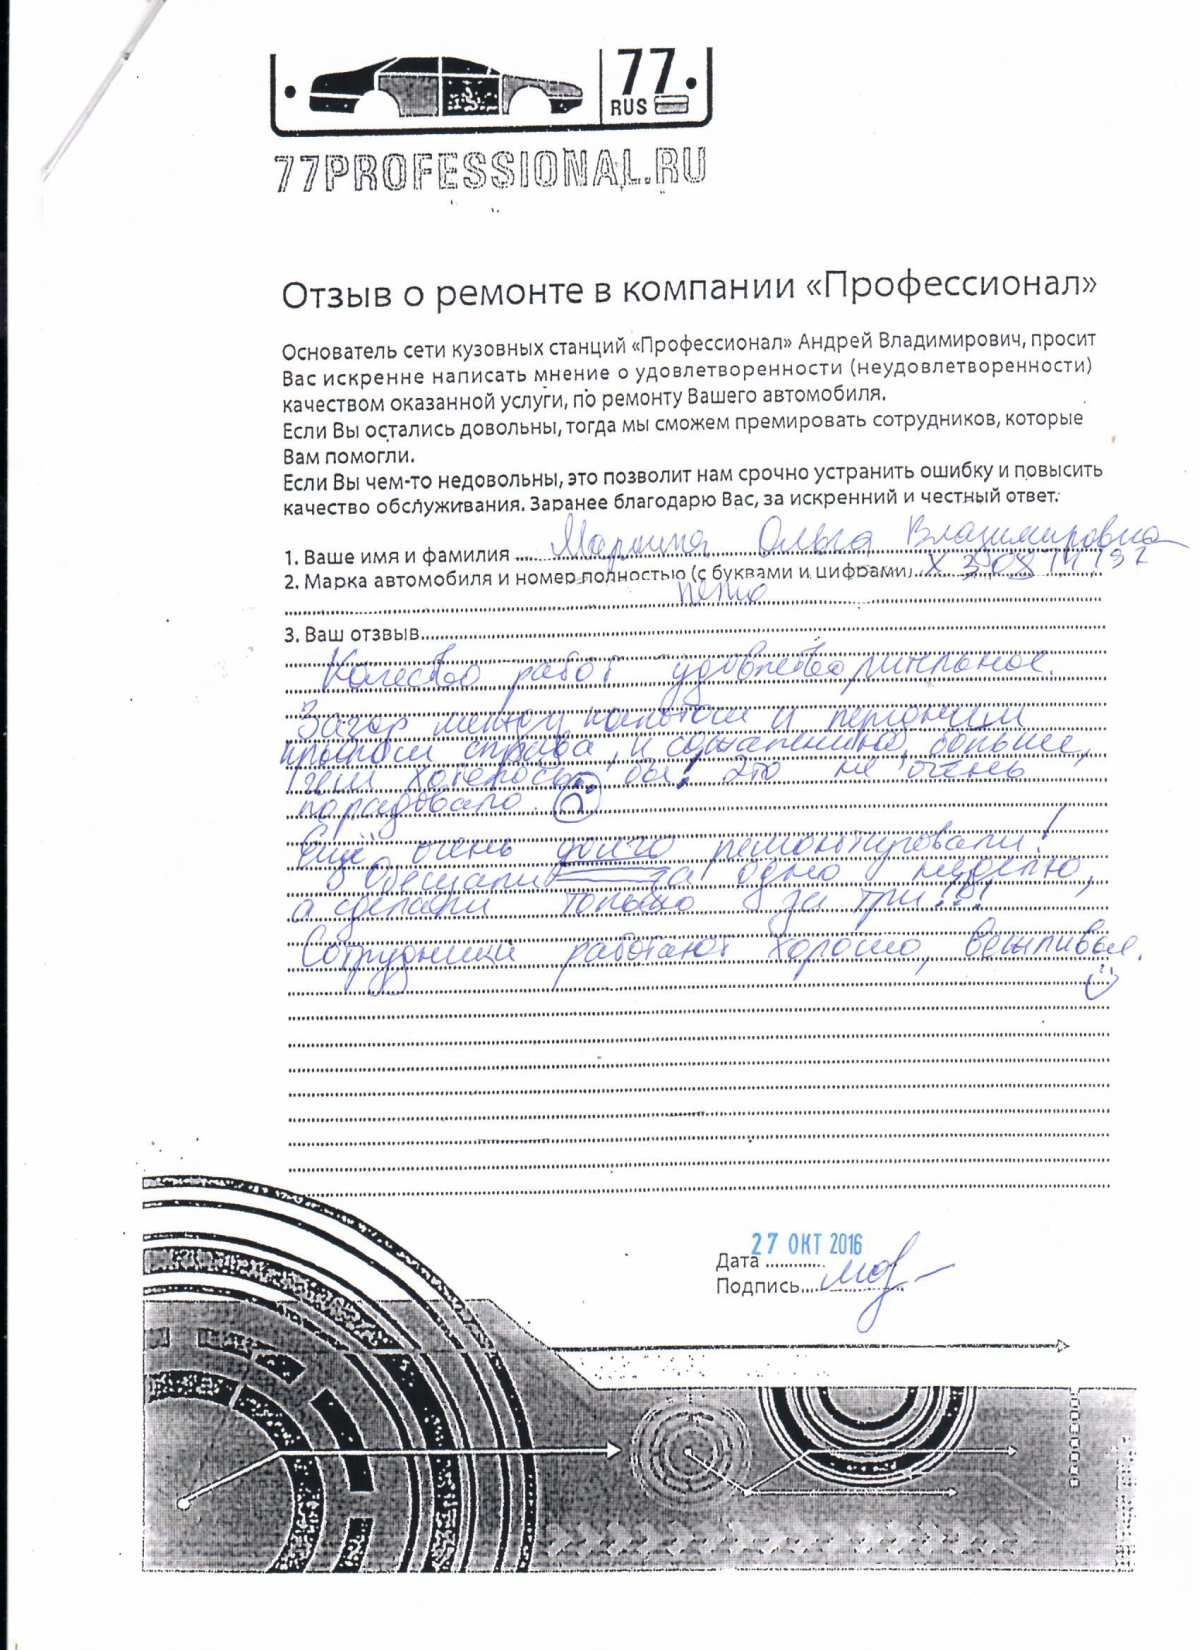 77
RUS
77PROFESSIONAL.RU
Отзыв о ремонте в компании «Профессионал»
Основатель сети кузовных станций «Профессионал» Андрей Владимирович, просит
Вас искренне написать мнение о удовлетворенности (неудовлетворенности)
качеством оказанной услуги, по ремонту Вашего автомобиля.
Если Вы остались довольны, тогда мы сможем премировать сотрудников, которые
Вам помогли.
Если Вы чем-то недовольны, это позволит нам срочно устранить ошибку и повысить
качество обслуживания. Заранее благодарю Вас, за искренний и честный ответ.
1. Ваше имя и фамилия Ольга Владимировна
2. Марка автомобиля и номер полностью (с буквами и цифрами)
3. Ваш отзвыв
Качество работ удовлетворительное.
Зазор между капотом и передним
крылом справа, к сожалению, больше,
чем хотелось бы! Это не очень
порадовало
Ещё очень долго ремонтировали!
Обещали за одну неделю,
а сделали только за три!!!
Сотрудники работают хорошо, вежливые.
27 ОКТ 2016
Дата
Подпись